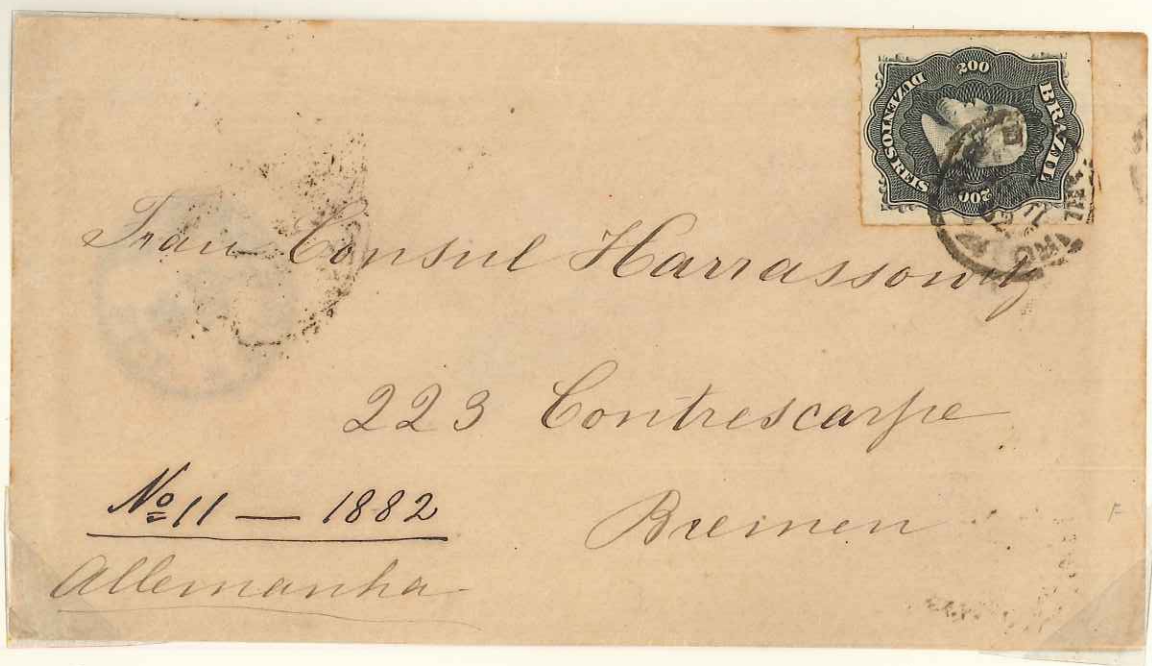 200
BRAZIL
DUZENTOS REIS
200
Frau Consul Harrassowitz
223 Contrescarpe
Bremen
No 11 — 1882
Allemanha
F